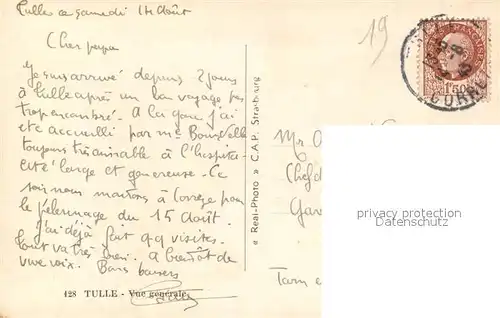 Tulle ce samedi 14 Août
19
Cher papa
Je suis arrivé depuis 2 jours
à Tulle après un bon voyage pas
trop encombré. A la gare j'ai
été accueilli par me
toujours très aimable à l'hospita-
lité large et généreuse. Ce
soir nous montons à Corrèze pour
le pèlerinage du 15 Août.
J'ai déjà fait qq visites.
Tout va très bien. A bientôt de
vive voix. Bons baisers
128 TULLE - Vue générale
« Real-Photo » C. A. P. Strasbourg
Mr
Chef d
Gar
Tarn e
1F50
CORR
privacy protection
Datenschutz